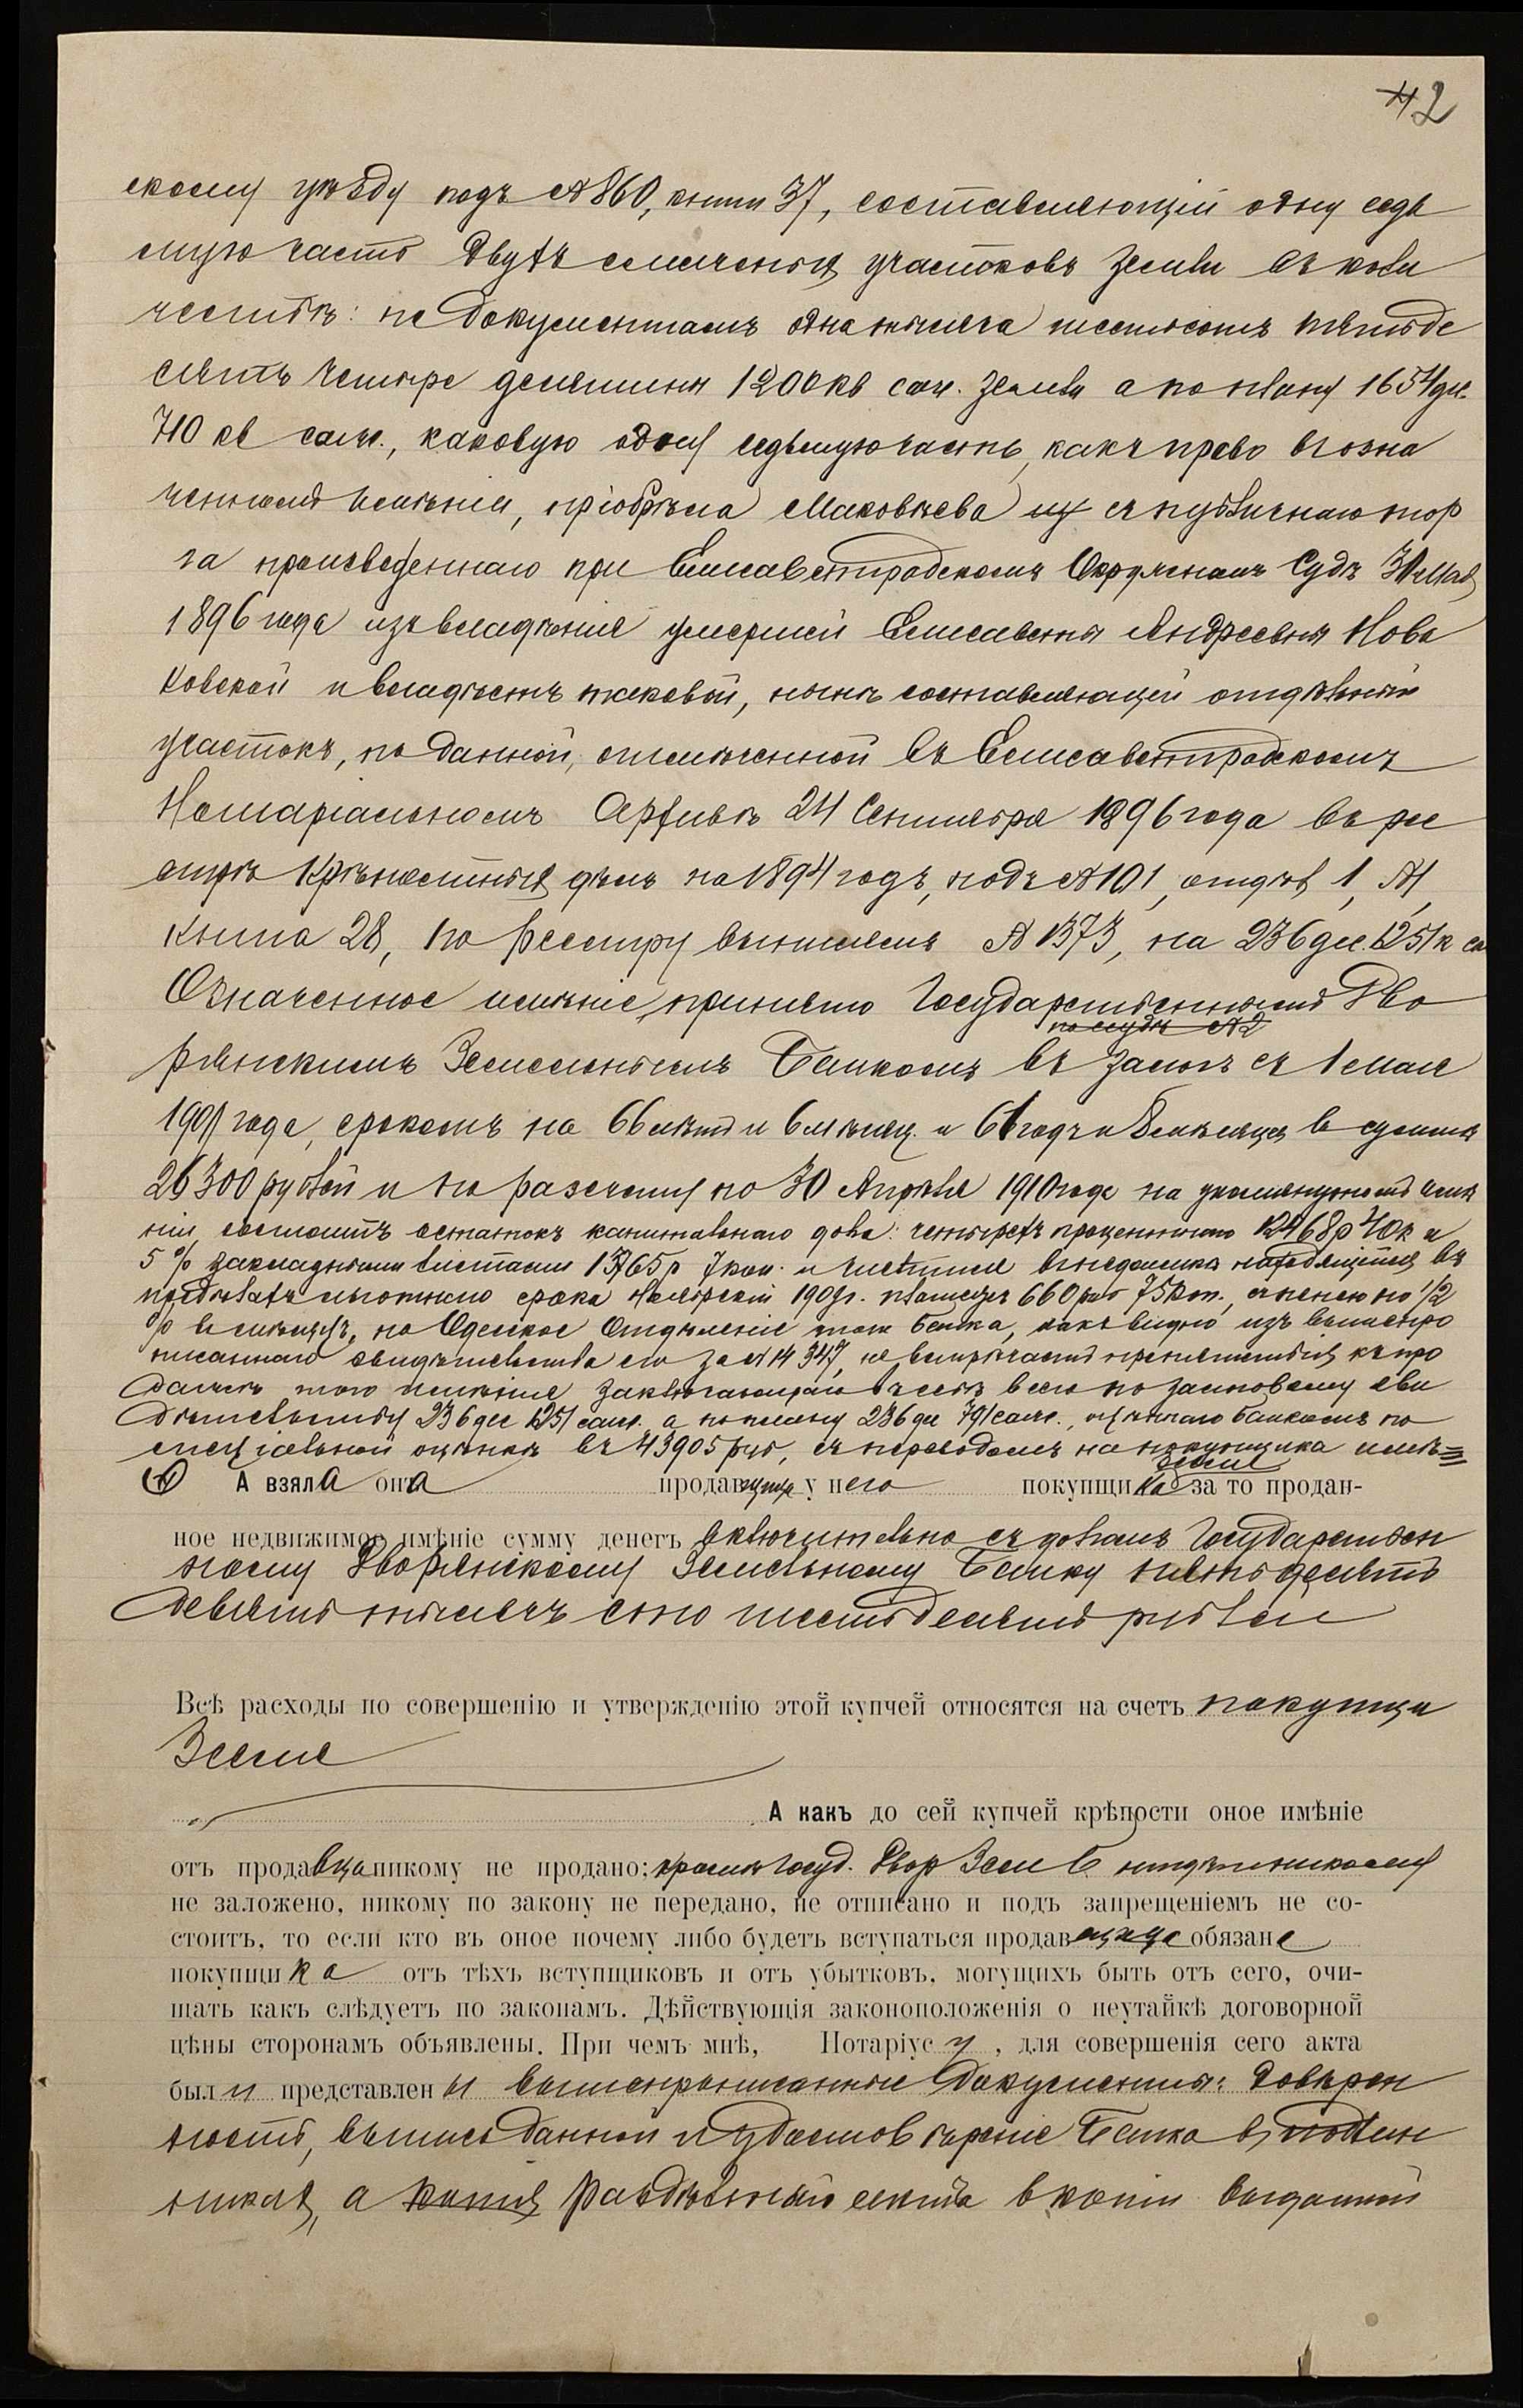 42
скому уѣзду подъ №860, книги 37, составляющій одну седь
мую часть двухъ смежныхъ участковъ земли въ коли
чествѣ: по документамъ одна тысяча шестьсотъ пятьде
сятъ четыре десятины 1200 кв саж. земли а по плану 1654 дес.
710 кв саж., каковую одну седьмую часть, какъ право въ озна
ченномъ имѣніи, пріобрѣла Маковѣева съ публичнаго тор
га произведеннаго при Елисаветградскомъ Окружномъ Судѣ Мая
1896 года изъ владѣнія умершей Елисаветы Андреевны Нова
ковской и владѣетъ таковой, нынѣ составляющей отдѣльный
участокъ, по данной, отмѣченной въ Елисаветградскомъ
Нотаріальномъ Архивѣ 24 Сентября 1896 года въ рее
стрѣ крѣпостныхъ дѣлъ на 1894 годъ, подъ №101, отдѣл 1, №1,
книга 28, по реестру выписямъ № 1373, на 236 дес. 1251 к са
Означенное имѣніе, принято Государственнымъ Дво
по ссудѣ №2
рянскимъ Земельнымъ Банкомъ въ залогъ съ 1 мая
1901 года, срокомъ на 66 лѣтъ и 6 мѣсяц. и 61 годъ и 8 мѣсяцевъ в суммѣ
26300 рублей и по разсчету по 30 Апрѣля 1910 года на упомянутомъ имѣ
ніи состоитъ остатокъ капитальнаго долга: четырехъ процентнаго 12468 р 40 к и
5% закладными листами 13765 р 7 коп. и числится въ недоимкѣ находящійся въ
предѣлахъ льготнаго срока Ноябрскій 1909 г. платежъ 660 руб 75 коп., съ пенею по 1/2
% въ мѣсяцъ, но Одесское Отдѣленіе того Банка, какъ видно изъ вышепро
писаннаго свидѣтельства его за №14347, не встрѣчаетъ препятствій къ про
дажѣ того имѣнія заключающаго въ себѣ всего по залоговому сви
дѣтельству 236 дес 1251 саж. а по плану 236 дес 791 саж., оцѣненнаго банкомъ по
спеціальной оцѣнкѣ въ 43905 руб, съ переводомъ на покупщика
А взяла она продавщица у него покупщика Земле за то продан-
ное недвижимое имѣніе сумму денегъ включительно съ долгомъ Государствен
ному Дворянскому Земельному Банку пятьдесятъ
девять тысячъ сто шестьдесятъ рублей
Всѣ расходы по совершенію и утвержденію этой купчей относятся на счетъ покупщи
Земле
А какъ до сей купчей крѣпости оное имѣніе
отъ продавца никому не продано; кромѣ Госуд. Двор Зем Б
не заложено, никому по закону не передано, не отписано и подъ запрещеніемъ не со-
стоитъ, то если кто въ оное почему либо будетъ вступаться продавщица обязана
покупщика отъ тѣхъ вступщиковъ и отъ убытковъ, могущихъ быть отъ сего, очи-
щать какъ слѣдуетъ по законамъ. Дѣйствующія законоположенія о неутайкѣ договорной
цѣны сторонамъ объявлены. При чемъ мнѣ, Нотаріусу, для совершенія сего акта
были представлены вышепрописанные документы: довѣрен
ность, выпись данной и удостовѣреніе Банка въ подлин
никахъ, а раздѣльнаго акта в копіи выданной